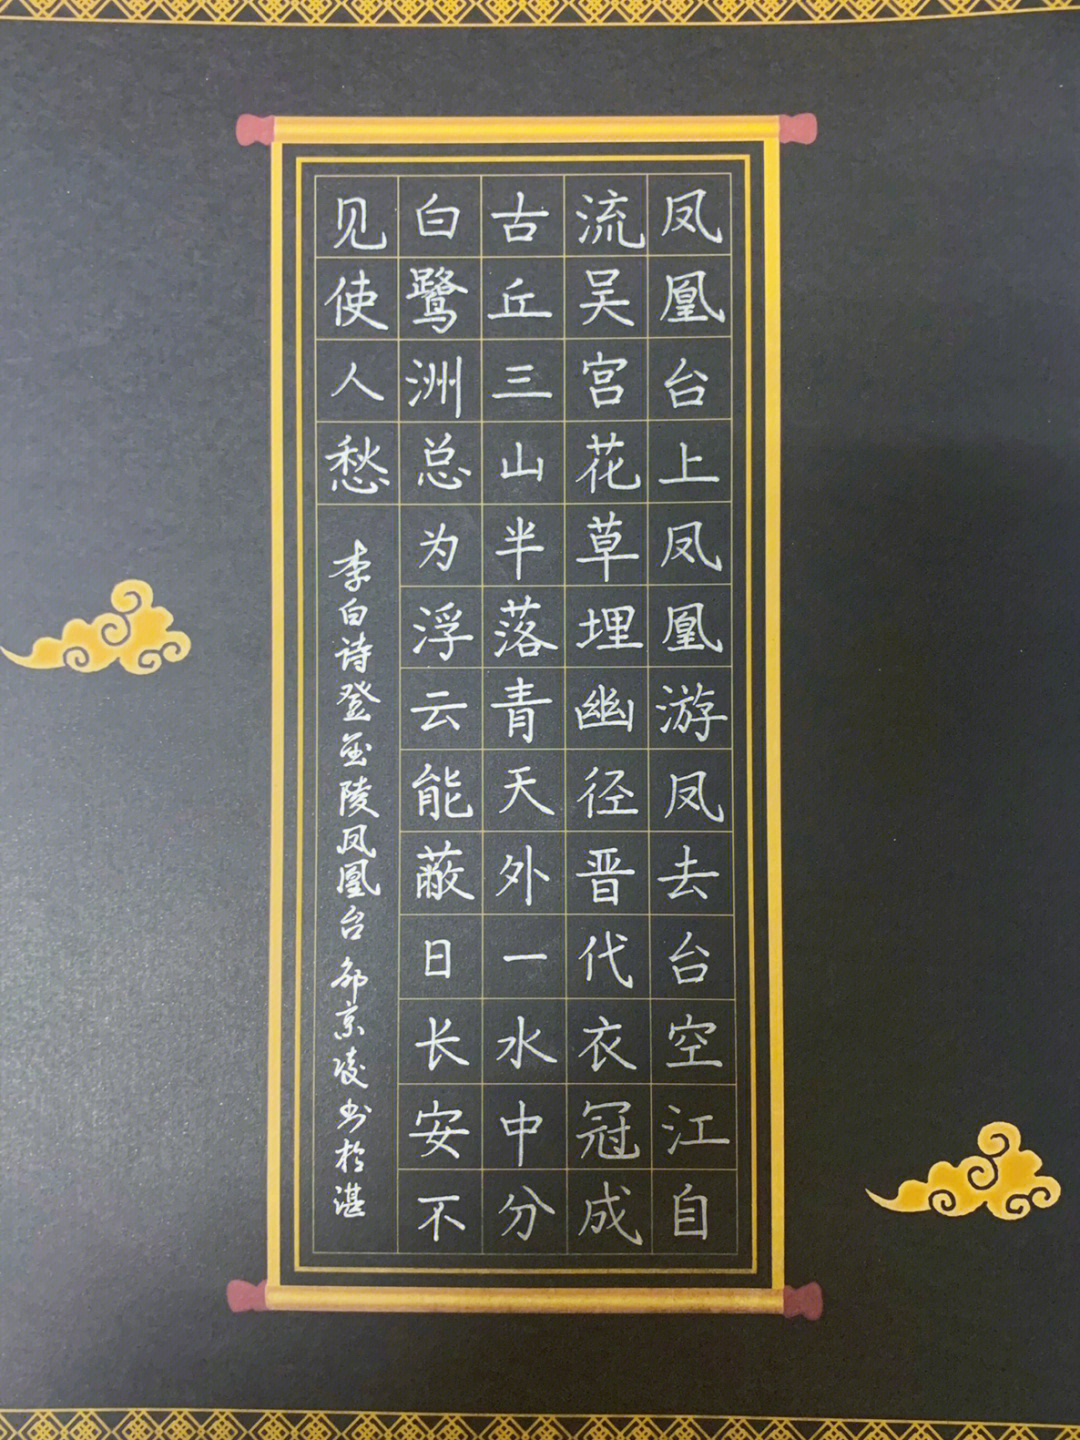 凤凰台上凤凰游凤去台空江自
流吴宫花草埋幽径晋代衣冠成
古丘三山半落青天外一水中分
白鹭洲总为浮云能蔽日长安不
见使人愁
李白诗登金陵凤凰台 邹京凌书于湛